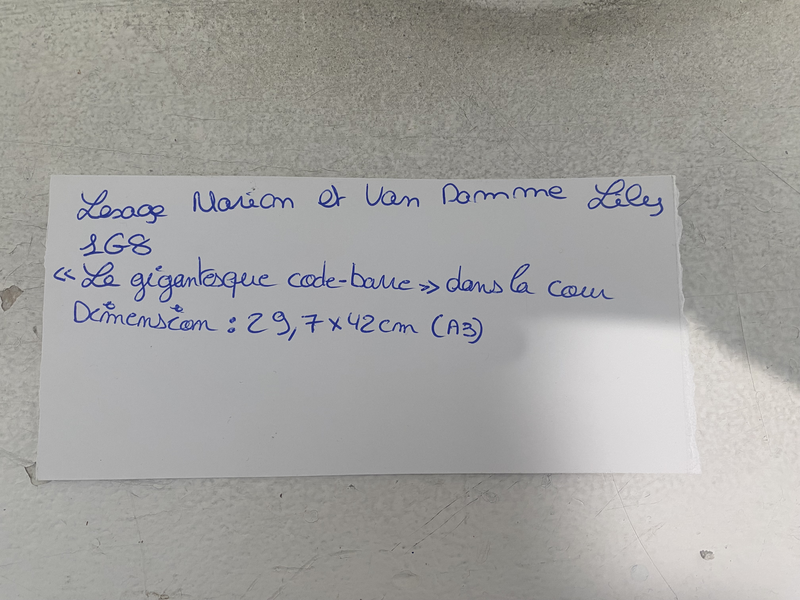 Lesage Marion et Van Damme Liley
1G8
« Le gigantesque code-barre » dans la cour
Dimension : 29,7 x 42 cm (A3)